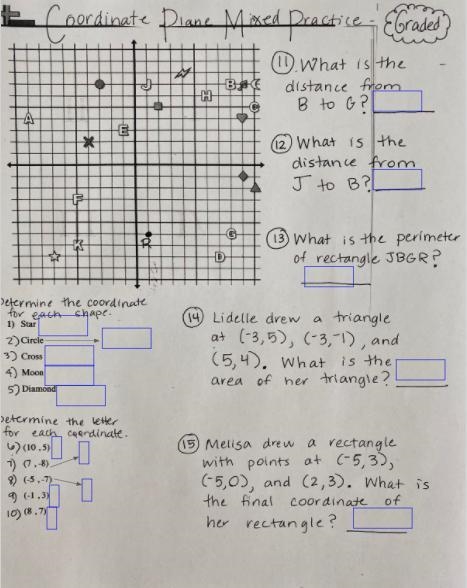 Coordinate Plane Mixed Practice -
Graded
J
B
C
H
C
A
E
F
K
R
G
D
11 What is the
distance from
B to G?
12 What is the
distance from
J to B?
13 What is the perimeter
of rectangle JBGR?
Determine the coordinate
for each shape.
1) Star
2) Circle
3) Cross
4) Moon
5) Diamond
14 Lidelle drew a triangle
at (-3,5), (-3,-1), and
(5,4). What is the
area of her triangle?
Determine the letter
for each coordinate.
6) (10,5)
7) (7,-8)
8) (-5,-7)
9) (-1,3)
10) (8,7)
15 Melisa drew a rectangle
with points at (-5,3),
(-5,0), and (2,3). What is
the final coordinate of
her rectangle?